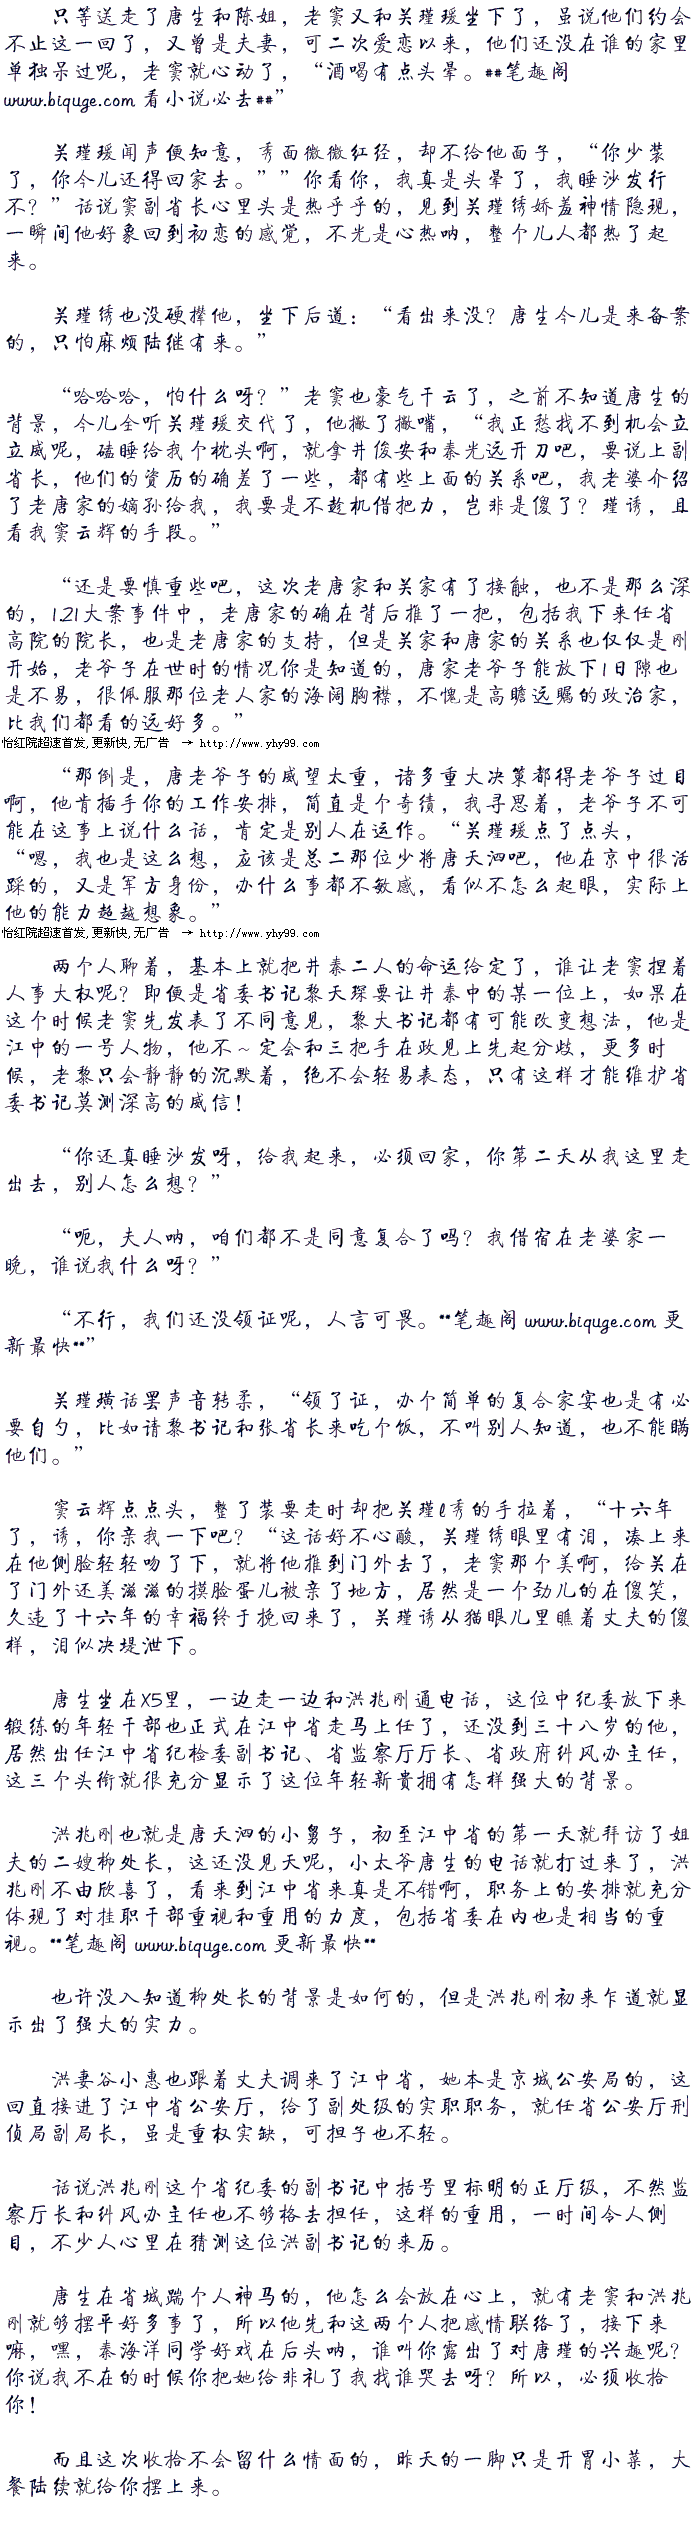 只等送走了唐生和陈姐，老窦又和关瑾瑗坐下了，虽说他们约会
不止这一回了，又曾是夫妻，可二次爱恋以来，他们还没在谁的家里
单独呆过呢，老窦就心动了，“酒喝有点头晕。##笔趣阁
www.biquge.com 看小说必去##”
关瑾瑗闻声便知意，秀面微微红径，却不给他面子，“你少装
了，你今儿还得回家去。””你看你，我真是头晕了，我睡沙发行
不？”话说窦副省长心里头是热乎乎的，见到关瑾绣娇羞神情隐现，
一瞬间他好象回到初恋的感觉，不光是心热呐，整个儿人都热了起
来。
关瑾绣也没硬撵他，坐下后道：“看出来没？唐生今儿是来备案
的，只怕麻烦陆继有来。”
“哈哈哈，怕什么呀？”老窦也豪气干云了，之前不知道唐生的
背景，今儿全听关瑾瑗交代了，他撇了撇嘴，“我正愁找不到机会立
立威呢，磕睡给我个枕头啊，就拿井俊安和秦光远开刀吧，要说上副
省长，他们的资历的确差了一些，都有些上面的关系吧，我老婆介绍
了老唐家的嫡孙给我，我要是不趁机借把力，岂非是傻了？瑾诱，且
看我窦云辉的手段。”
“还是要慎重些吧，这次老唐家和关家有了接触，也不是那么深
的，1.21大案事件中，老唐家的确在背后推了一把，包括我下来任省
高院的院长，也是老唐家的支持，但是关家和唐家的关系也仅仅是刚
开始，老爷子在世时的情况你是知道的，唐家老爷子能放下1日隙也
是不易，很佩服那位老人家的海阔胸襟，不愧是高瞻远瞩的政治家，
比我们都看的远好多。”
怡红院超速首发,更新快,无广告 → http://www.yhy99.com
“那倒是，唐老爷子的威望太重，诸多重大决策都得老爷子过目
啊，他肯插手你的工作安排，简直是个奇绩，我寻思着，老爷子不可
能在这事上说什么话，肯定是别人在运作。“关瑾瑗点了点头，
“嗯，我也是这么想，应该是总二那位少将唐天泗吧，他在京中很活
踩的，又是军方身份，办什么事都不敏感，看似不怎么起眼，实际上
他的能力超越想象。”
怡红院超速首发,更新快,无广告 → http://www.yhy99.com
两个人聊着，基本上就把井秦二人的命运给定了，谁让老窦捏着
人事大权呢？即便是省委书记黎天琛要让井秦中的某一位上，如果在
这个时候老窦先发表了不同意见，黎大书记都有可能改变想法，他是
江中的一号人物，他不～定会和三把手在政见上先起分歧，更多时
候，老黎只会静静的沉默着，绝不会轻易表态，只有这样才能维护省
委书记莫测深高的威信！
“你还真睡沙发呀，给我起来，必须回家，你第二天从我这里走
出去，别人怎么想？”
“呃，夫人呐，咱们都不是同意复合了吗？我借宿在老婆家一
晚，谁说我什么呀？”
“不行，我们还没领证呢，人言可畏。**笔趣阁 www.biquge.com 更
新最快**”
关瑾璜话罢声音转柔，“领了证，办个简单的复合家宴也是有必
要自勺，比如请黎书记和张省长来吃个饭，不叫别人知道，也不能瞒
他们。”
窦云辉点点头，整了装要走时却把关瑾l秀的手拉着，“十六年
了，诱，你亲我一下吧？“这话好不心酸，关瑾绣眼里有泪，凑上来
在他侧脸轻轻吻了下，就将他推到门外去了，老窦那个美啊，给关在
了门外还美滋滋的摸脸蛋儿被亲了地方，居然是一个劲儿的在傻笑，
久违了十六年的幸福终于挽回来了，关瑾诱从猫眼儿里瞧着丈夫的傻
样，泪似决堤泄下。
唐生坐在X5里，一边走一边和洪兆刚通电话，这位中纪委放下来
锻练的年轻干部也正式在江中省走马上任了，还没到三十八岁的他，
居然出任江中省纪检委副书记、省监察厅厅长、省政府纠风办主任，
这三个头衔就很充分显示了这位年轻新贵拥有怎样强大的背景。
洪兆刚也就是唐天泗的小舅子，初至江中省的第一天就拜访了姐
夫的二嫂柳处长，这还没见天呢，小太爷唐生的电话就打过来了，洪
兆刚不由欣喜了，看来到江中省来真是不错啊，职务上的安排就充分
体现了对挂职干部重视和重用的力度，包括省委在内也是相当的重
视。**笔趣阁 www.biquge.com 更新最快**
也许没入知道柳处长的背景是如何的，但是洪兆刚初来乍道就显
示出了强大的实力。
洪妻谷小惠也跟着丈夫调来了江中省，她本是京城公安局的，这
回直接进了江中省公安厅，给了副处级的实职职务，就任省公安厅刑
侦局副局长，虽是重权实缺，可担子也不轻。
话说洪兆刚这个省纪委的副书记中括号里标明的正厅级，不然监
察厅长和纠风办主任也不够格去担任，这样的重用，一时间令人侧
目，不少人心里在猜测这位洪副书记的来历。
唐生在省城踹个人神马的，他怎么会放在心上，就有老窦和洪兆
刚就够摆平好多事了，所以他先和这两个人把感情联络了，接下来
嘛，嘿，秦海洋同学好戏在后头呐，谁叫你露出了对唐瑾的兴趣呢？
你说我不在的时候你把她给非礼了我找谁哭去呀？所以，必须收拾
你！
而且这次收拾不会留什么情面的，昨天的一脚只是开胃小菜，大
餐陆续就给你摆上来。